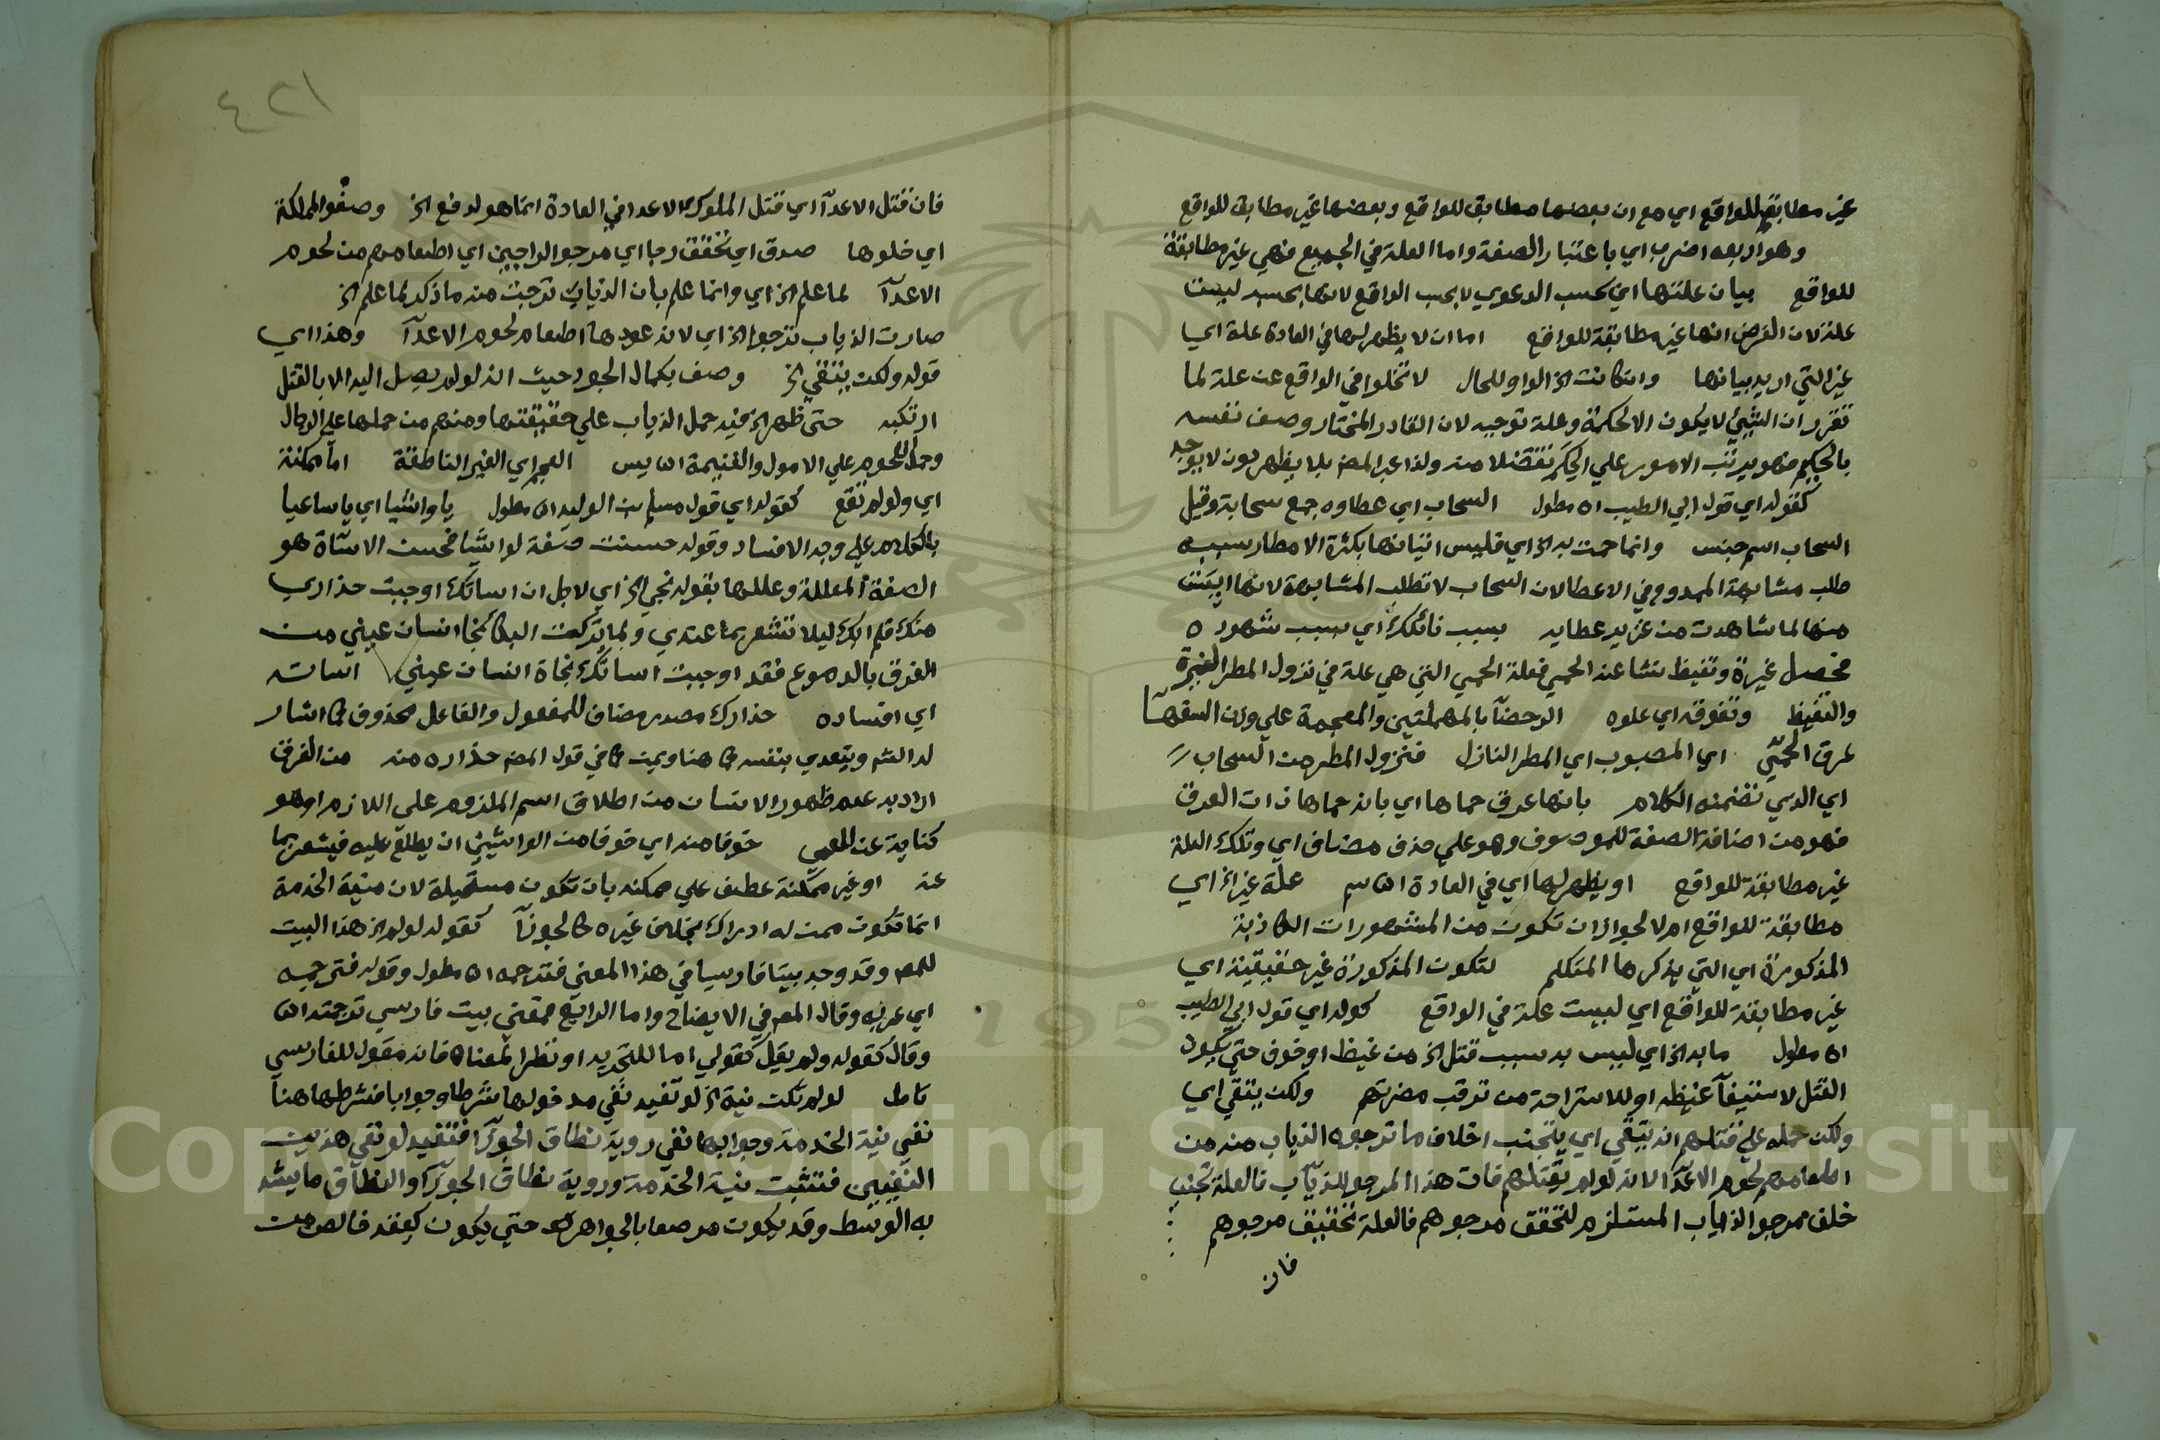 غير مطابقة للواقع اي مع ان بعضها مطابق للواقع وبعضها غير مطابق للواقع
وهو اربعه اضرب اي باعتبار الصفة واما العلة في الجميع فهي غير مطابقة
للواقع بيان علتها اي بحسب الدعوي لا بحسب الواقع لانها بحسبه ليست
علة لان الفرض انها غير مطابقة للواقع اما ان لا يظهر لها في العادة علة اي
غير التي اريد بيانها وان كانت الخ الواو للحال لا تخلوا في الواقع عن علة لما
تقرر ان الشيئ لا يكون الا لحكمة وعلة توجبه لان القادر المختار وصف نفسه
بالحكيم فهو يرتب الامور علي الحكم تفضلا منه ولذا عبر المص بلا يظهر دون لا يوجد
كقوله اي قول ابي الطيب اه مطول السحاب اي عطاوه جمع سحابة وقيل
السحاب اسم جنس وانما حمت به الخ اي فليس اتيانها بكثرة الامطار سببه
طلب مشابهة الممدوح في الاعطا لان السحاب لا تطلب المشابهة لانها ايست
منها لما شاهدت من غزير عطايه بسبب نائلك اي بسبب شهوده
فحصل غيرة وتغيظ نشا عنه الحمي فعلة الحمي التي هي علة في نزول المطر الغيرة
والتغيظ وتفوقه اي علوه الرحضآ بالمهملتين والمعجمة علي وزن السفهآ
عرق الحمي اي المصبوب اي المطر النازل فنزول المطر من السحاب
اي الذي تضمنه الكلام بانها عرق حماها اي بانه حماها ذات العرق
فهو من اضافة الصفة للموصوف وهو علي حذف مضاف اي وتلك العلة
غير مطابقة للواقع او يظهر لها اي في العادة اه سم علة غير الخ اي
مطابقة للواقع ام لا لجواز ان تكون من المشهورات الكاذبة
المذكورة اي التي يذكرها المتكلم لتكون المذكورة غير حقيقية اي
غير مطابقة للواقع اي ليست علة في الواقع كقوله اي قول ابي الطيب
اه مطول ما به الخ اي ليس به سبب قتل الخ من غيظ او خوف حتي يكون
القتل لاستشفآ غيظه او للاستراحة من ترقب مضرتهم ولكن يتقي اي
ولكن حمله علي قتلهم انه يتقي اي يتجنب اخلاف ما ترجوه الذياب منه من
اطعامهم لحوم الاعدآ لانه لو لم يقتلهم فات هذا المرجو للذيآب فالعلة تجنب
خلف مرجو الذياب المستلزم لتحقق مرجوهم فالعلة تحقيق مرجوهم
فان
٤٢١
فان قتل الاعدآ اي قتل الملوك الاعدا في العادة انما هو لدفع الخ وصفو المملكة
اي خلوها صدق اي تحقق رجا اي مرجو الراجين اي اطعامهم من لحوم
الاعدآ لما علم الخ اي وانما علم بان الذياب ترجت منه ما ذكر لما علم الخ
صارت الذياب ترجوا الخ اي لانه عودها اطعام لحوم الاعدآ وهذا اي
قوله ولكن يتقي الخ وصف بكمال الجود حيث انه لو لم يصل اليه الا بالقتل
ارتكبه حتى ظهر الخ فيه حمل الذياب علي حقيقتها ومنهم من حملها علي الرجال
وحمل اللحوم علي الاموال والغنيمة اه يس العجم اي الغير الناطقة اما ممكنة
اي ولو لم تقع كقوله اي قول مسلم بن الوليد اه مطول يا واشيا اي يا ساعيا
بالكلام علي وجه الافساد وقوله حسنت صفة لواشيا فحسن الاسآة هو
الصفة المعللة وعللها بقوله نجي الخ اي لاجل ان اساتك اوجبت حذاري
منك فلم ابك ليلا تشعر بما عندي ولما تركت البكا نجا انسان عيني من
الغرق بالدموع فقد اوجبت اساتك نجاة انسان عيني اساته
اي افساده حذارك مصدر مضاف للمفعول والفاعل محذوف كما اشار
له الش ويتعدي بنفسه كما هنا وبمن كما في قول المص حذاره منه من الغرق
اراد به عدم ظهور الانسان من اطلاق اسم الملزوم علي اللازم او هو
كناية عن العمي خوفا منه اي خوفا من الواشي ان يطلع عليه فيشعر بما
عنده او غير ممكنة عطف علي ممكنه بان تكون مستحيلة لان منية الخدمة
انما تكون ممن له ادراك بخلاف غيره كالجوزآ كقوله لو لم الخ هذا البيت
للمص وقد وجد بيتا فارسيا في هذا المعني فترجمه اه مطول وقوله فترجمه
اي عربه وقال المص في الايضاح واما الرابع فمعني بيت فارسي ترجمته اه
وقال كقوله ولم يقل كقولي اما للتجريد او نظرا لمعناه فانه مقول للفارسي
تامل لو لم تكن نية الخ لو تفيد نفي مدخولها شرطا وجوابا فشرطها هنا
نفي نية الخدمة وجوابها نفي روية نطاق الجوزآ فتفيد لو نفي هذين
النفيين فتثبت نية الخدمة وروية نطاق الجوزآ والنطاق ما يشد
به الوسط وقد يكون مرصعا بالجواهر حتي يكون كعقد خالص من